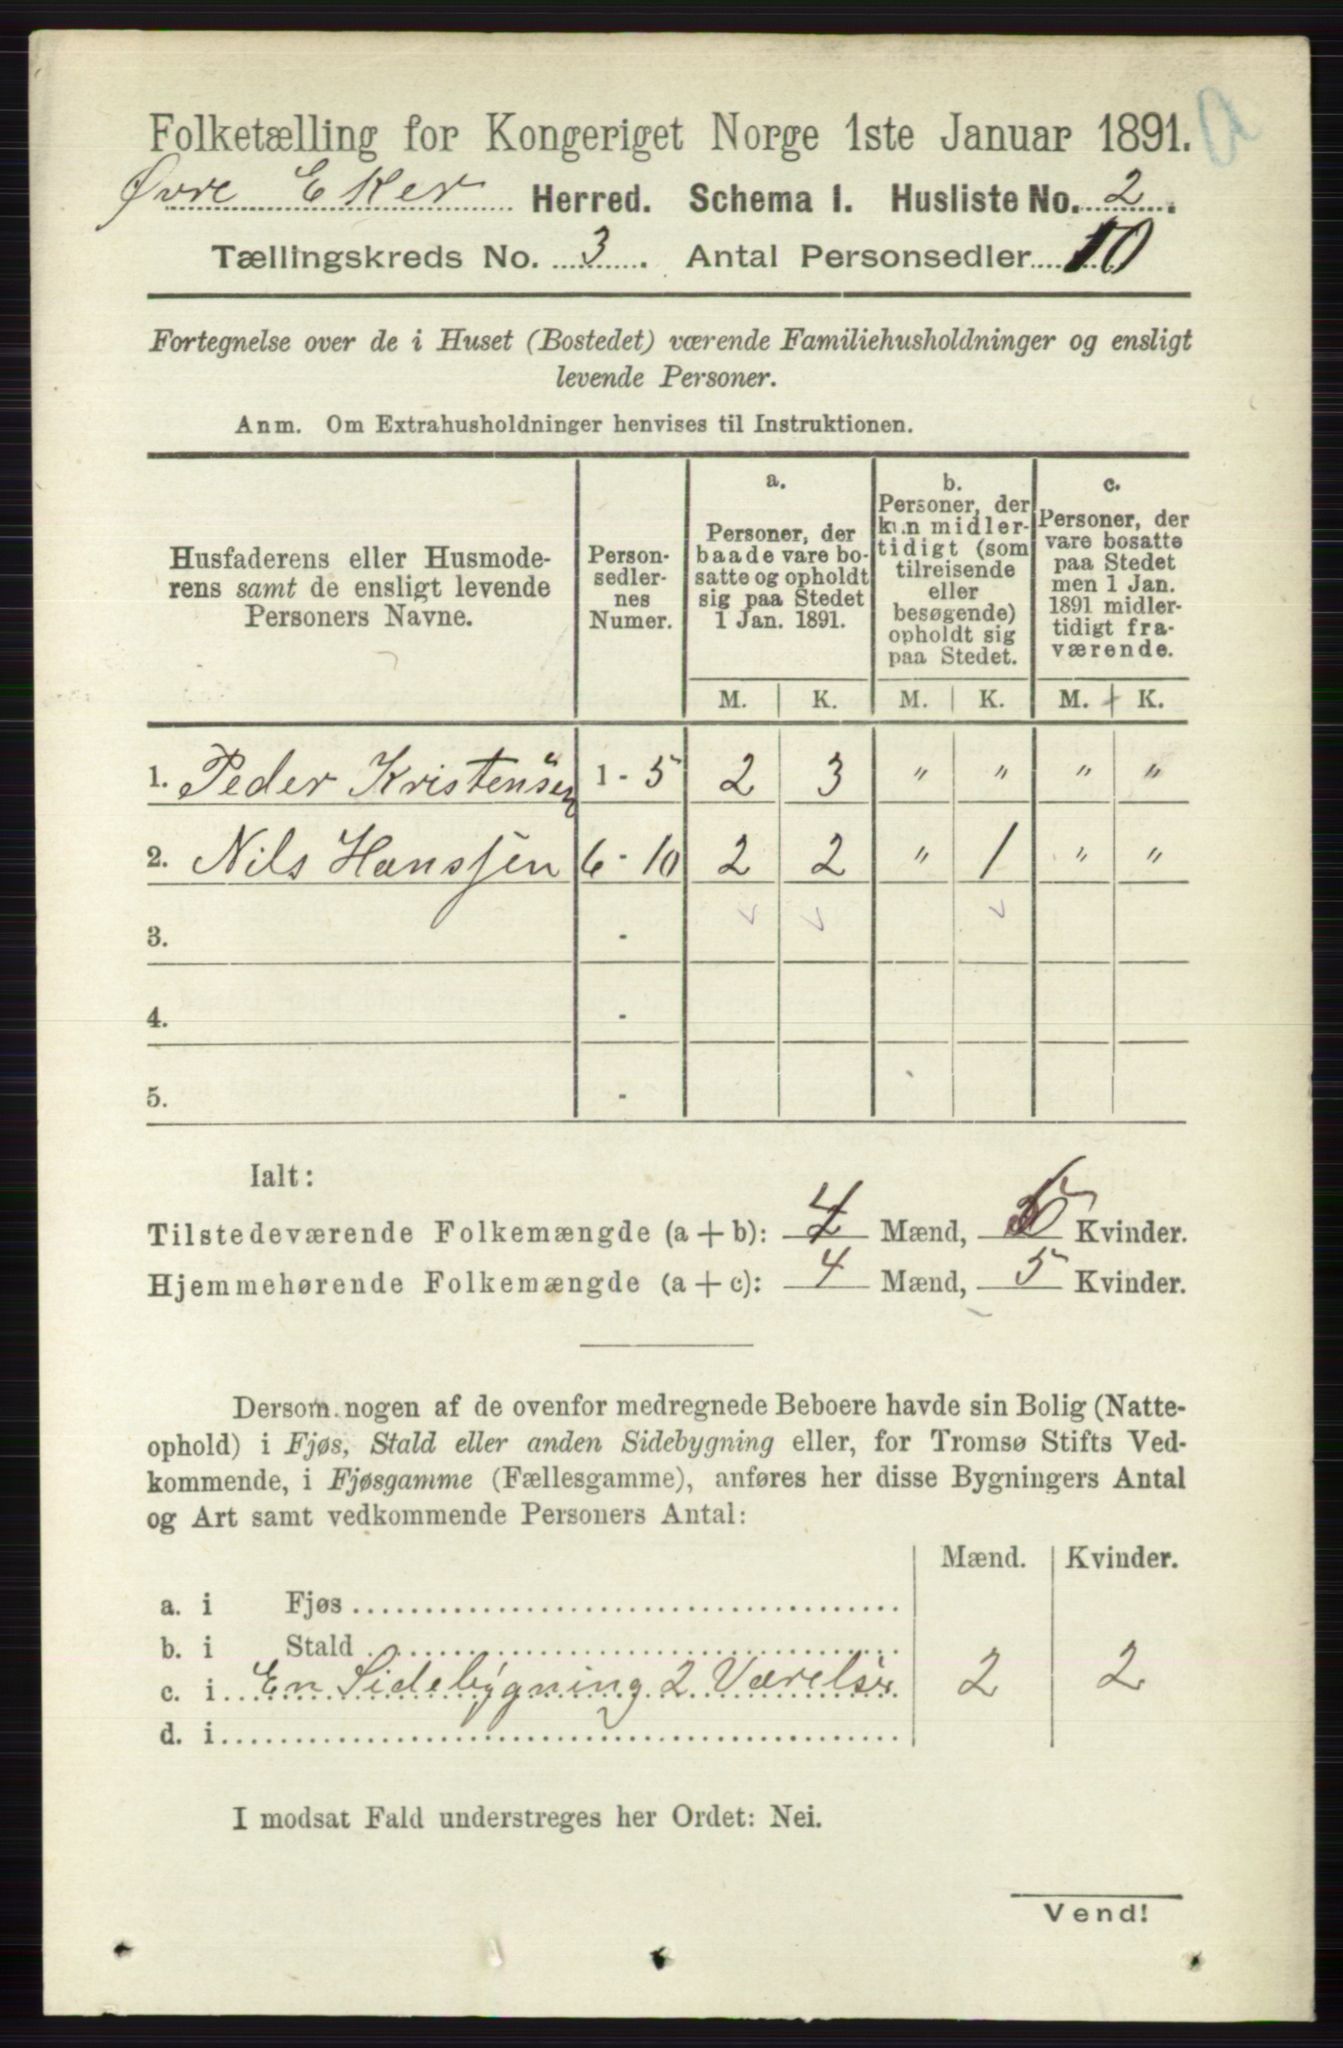 Folketælling for Kongeriget Norge 1ste Januar 1891.
Øvre Eker Herred. Schema 1. Husliste No. 2.
Tællingskreds No. 3. Antal Personsedler 10
Fortegnelse over de i Huset (Bostedet) værende Familiehusholdninger og ensligt
levende Personer.
Anm. Om Extrahusholdninger henvises til Instruktionen.
Husfaderens eller Husmode-
rens samt de ensligt levende
Personers Navne.
Person-
sedler-
nes
Numer.
a.
Personer, der
baade vare bo-
satte og opholdt
sig paa Stedet
1 Jan. 1891.
b.
Personer, der
kun midler-
tidigt (som
tilreisende
eller
besøgende)
opholdt sig
paa Stedet.
c.
Personer, der
vare bosatte
paa Stedet
men 1 Jan.
1891 midler-
tidigt fra-
værende.
M. K. M. K. M. K.
1. Peder Kristensen 1 - 5 2 3 " " " "
2. Nils Hanssen 6 - 10 2 2 " 1 " "
3. -
4. -
5. -
Ialt:
Tilstedeværende Folkemængde (a + b): 4 Mænd, Kvinder.
Hjemmehørende Folkemængde (a + c): 4 Mænd, 5 Kvinder.
Dersom nogen af de ovenfor medregnede Beboere havde sin Bolig (Natte-
ophold) i Fjøs, Stald eller anden Sidebygning eller, for Tromsø Stifts Ved-
kommende, i Fjøsgamme (Fællesgamme), anføres her disse Bygningers Antal
og Art samt vedkommende Personers Antal:
Mænd. Kvinder.
a. i Fjøs
b. i Stald
c. i En Sidebygning 2 Værelser 2 2
d. i
I modsat Fald understreges her Ordet: Nei.
Vend!